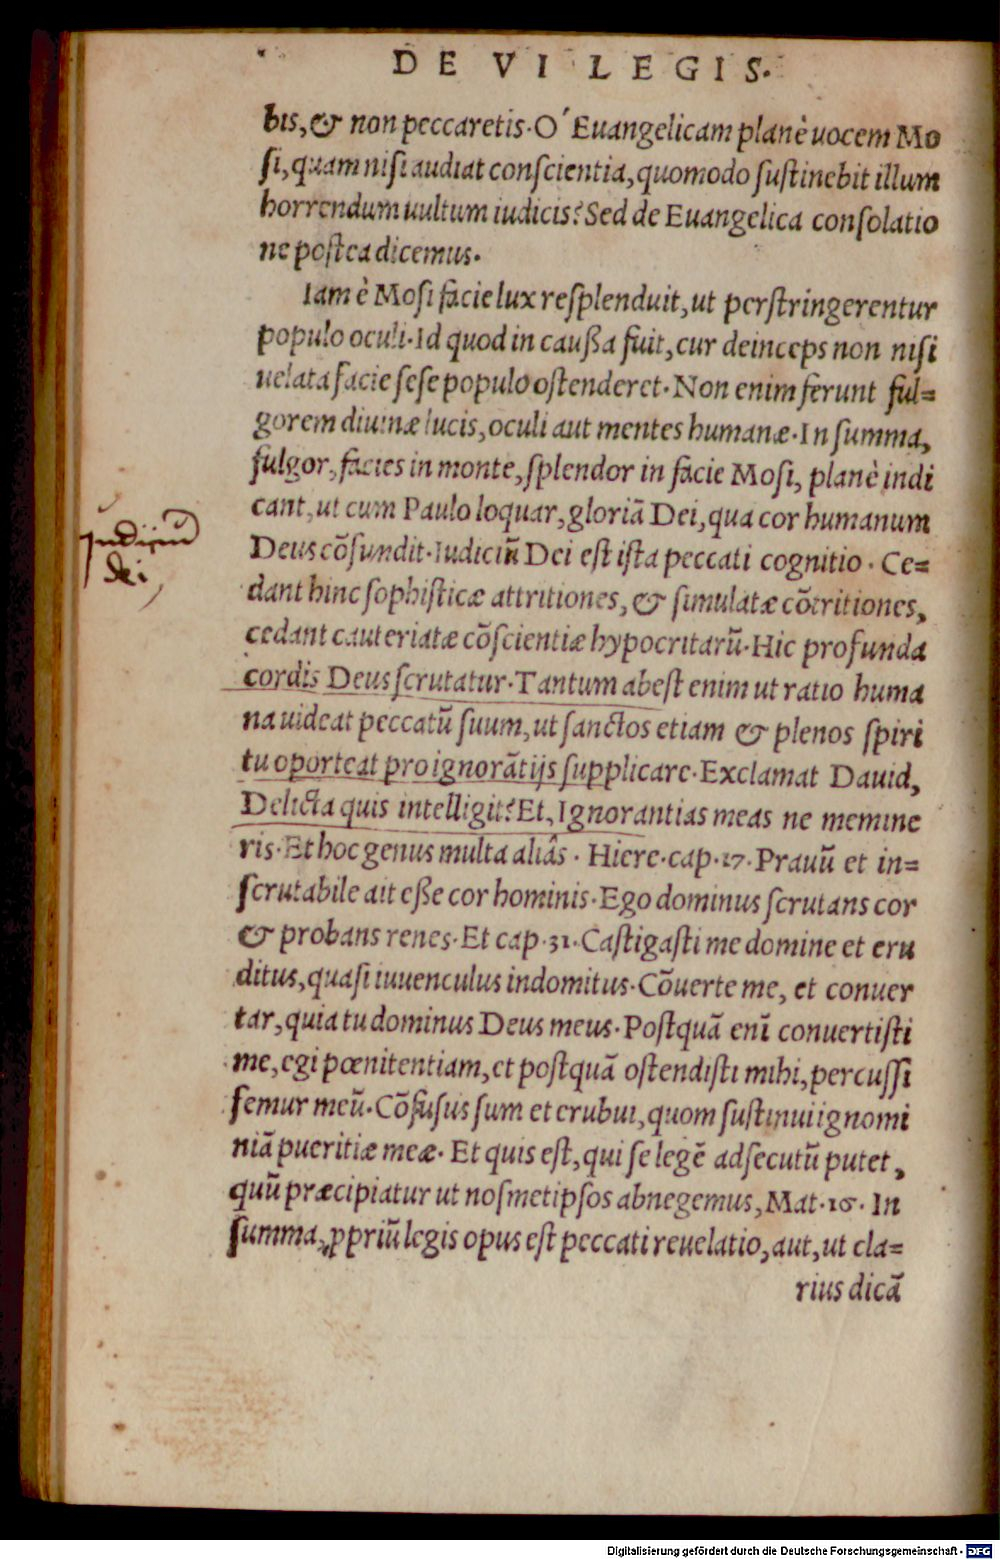 DE VI LEGIS.
bis, & non peccaretis. O´ Euangelicam planè uocem Mo
ſi, quam niſi audiat conſcientia, quomodo ſuſtinebit illum
horrendum uultum iudicis? Sed de Euangelica conſolatio
ne poſtea dicemus.
Iam è Moſi facie lux reſplenduit, ut perſtringerentur
populo oculi. Id quod in cauſſa fuit, cur deinceps non niſi
uelata facie ſeſe populo oſtenderet. Non enim ferunt ful=
gorem diuinæ lucis, oculi aut mentes humanæ. In ſumma,
fulgor, facies in monte, ſplendor in facie Moſi, planè indi
cant, ut cum Paulo loquar, gloriã Dei, qua cor humanum
Deus cõfundit. Iudiciũ Dei eſt iſta peccati cognitio. Ce=
dant hinc ſophiſticæ attritiones, & ſimulatæ cõtritiones,
cedant cauteriatæ cõſcientiæ hypocritarũ. Hic profunda
cordis Deus ſcrutatur. Tantum abeſt enim ut ratio huma
na uideat peccatũ ſuum, ut ſanctos etiam & plenos ſpiri
tu oporteat pro ignorãtijs ſupplicare. Exclamat Dauid,
Delicta quis intelligit? Et, Ignorantias meas ne memine
ris. Et hoc genus multa aliâs. Hiere. cap. 17. Prauũ et in=
ſcrutabile ait eſſe cor hominis. Ego dominus ſcrutans cor
& probans renes. Et cap. 31. Caſtigaſti me domine et eru
ditus, quaſi iuuenculus indomitus. Cõuerte me, et conuer
tar, quia tu dominus Deus meus. Poſtquã enĩ conuertiſti
me, egi pœnitentiam, et poſtquã oſtendiſti mihi, percuſſi
femur meũ. Cõfuſus ſum et erubui, quom ſuſtinui ignomi
niã pueritiæ meæ. Et quis eſt, qui ſe legẽ adſecutũ putet,
quũ præcipiatur ut noſmetipſos abnegemus, Mat. 16. In
ſumma, ꝓpriũ legis opus eſt peccati reuelatio, aut, ut cla=
rius dicã
Judiciũ
dei
Digitalisierung gefördert durch die Deutsche Forschungsgemeinschaft - DFG